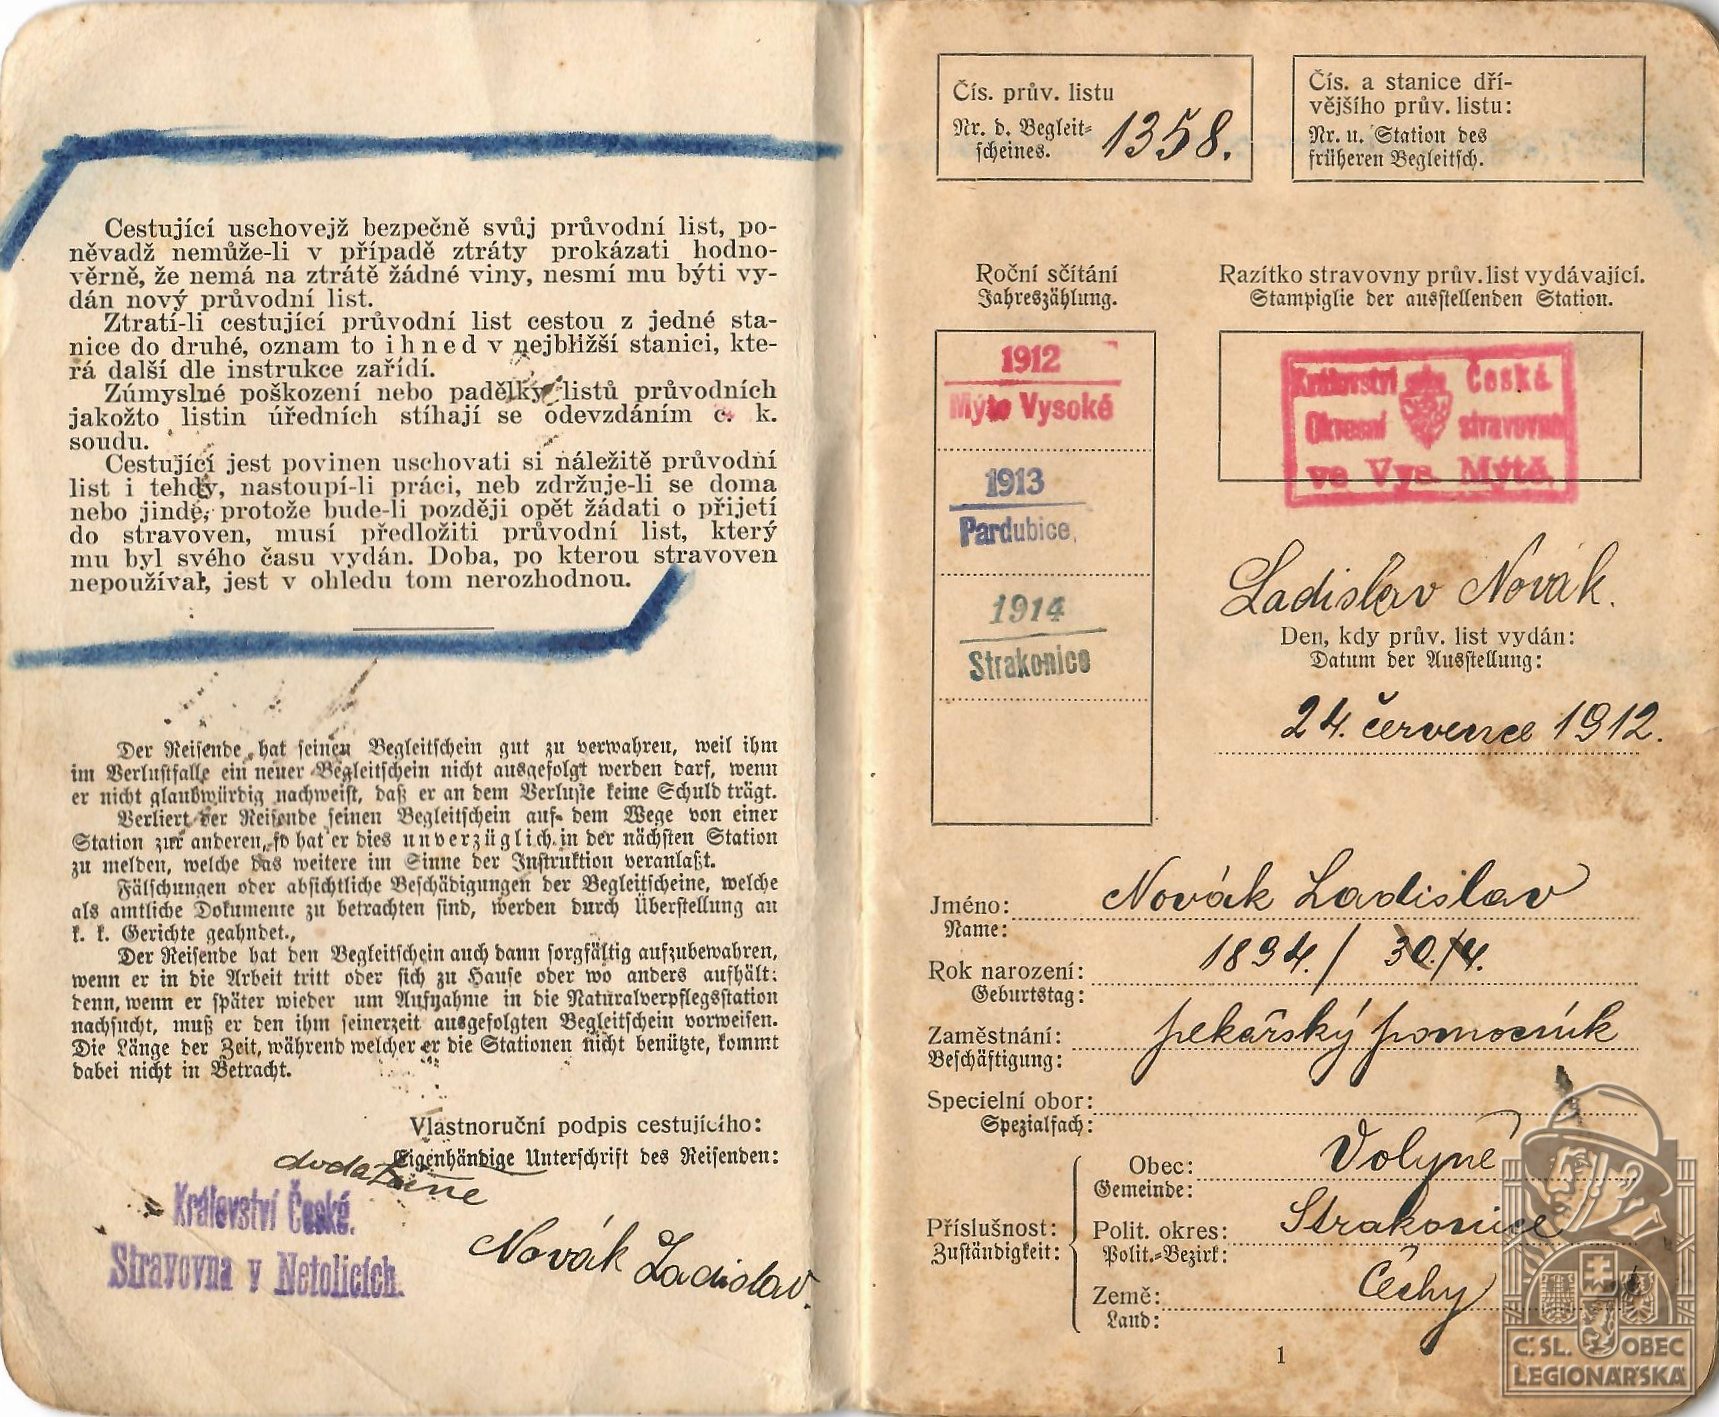 Cestující uschovejž bezpečně svůj průvodní list, po-
něvadž nemůže-li v případě ztráty prokázati hodno-
věrně, že nemá na ztrátě žádné viny, nesmí mu býti vy-
dán nový průvodní list.
Ztratí-li cestující průvodní list cestou z jedné sta-
nice do druhé, oznam to ihned v nejbližší stanici, kte-
rá další dle instrukce zařídí.
Zúmyslné poškození nebo padělky listů průvodních
jakožto listin úředních stíhají se odevzdáním c. k.
soudu.
Cestující jest povinen uschovati si náležitě průvodní
list i tehdy, nastoupí-li práci, neb zdržuje-li se doma
nebo jinde, protože bude-li později opět žádati o přijetí
do stravoven, musí předložiti průvodní list, který
mu byl svého času vydán. Doba, po kterou stravoven
nepoužíval, jest v ohledu tom nerozhodnou.
Der Reisende hat seinen Begleitschein gut zu verwahren, weil ihm
im Verlustfalle ein neuer Begleitschein nicht ausgefolgt werden darf, wenn
er nicht glaubwürdig nachweist, daß er an dem Verluste keine Schuld trägt.
Verliert der Reisende seinen Begleitschein auf dem Wege von einer
Station zur anderen, so hat er dies unverzüglich in der nächsten Station
zu melden, welche das weitere im Sinne der Instruktion veranlaßt.
Fälschungen oder absichtliche Beschädigungen der Begleitscheine, welche
als amtliche Dokumente zu betrachten sind, werden durch Überstellung an
k. k. Gerichte geahndet.
Der Reisende hat den Begleitschein auch dann sorgfältig aufzubewahren,
wenn er in die Arbeit tritt oder sich zu Hause oder wo anders aufhält:
denn, wenn er später wieder um Aufnahme in die Naturalverpflegsstation
nachsucht, muß er den ihm seinerzeit ausgefolgten Begleitschein vorweisen.
Die Länge der Zeit, während welcher er die Stationen nicht benützte, kommt
dabei nicht in Betracht.
Vlastnoruční podpis cestujícího:
Eigenhändige Unterschrift des Reisenden:
dodatečné
Království České.
Stravovna v Netolicích.
Novák Ladislav.
Čís. prův. listu
Nr. d. Begleit-
scheines.
1358.
Čís. a stanice dří-
vějšího prův. listu:
Nr. u. Station des
früheren Begleitsch.
Roční sčítání
Jahreszählung.
1912
Mýto Vysoké
1913
Pardubice
1914
Strakonice
Razítko stravovny prův. list vydávající.
Stampiglie der ausstellenden Station.
Království České.
Okresní stravovna
ve Vys. Mýtě.
Ladislav Novák.
Den, kdy prův. list vydán:
Datum der Ausstellung:
24. července 1912.
Jméno: Novák Ladislav
Name:
Rok narození: 1894. / 30./4.
Geburtstag:
Zaměstnání: pekařský pomocník
Beschäftigung:
Specielní obor:
Spezialfach:
Příslušnost:
Zuständigkeit:
Obec: Volyně
Gemeinde:
Polit. okres: Strakonice
Polit.-Bezirk:
Země: Čechy
Land:
1
Č.SL. OBEC
LEGIONÁŘSKÁ